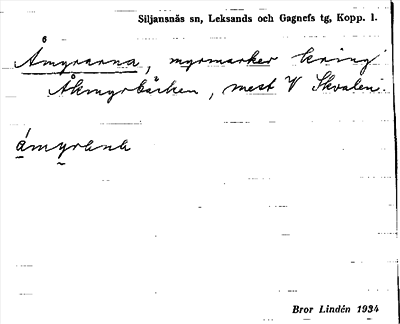 Siljansnäs sn, Leksands och Gagnefs tg, Kopp. l.
Åmyrarna, myrmarker kring
Åkmyrbäcken, mest V Skvalen.
ámyrana
Bror Lindén 1934